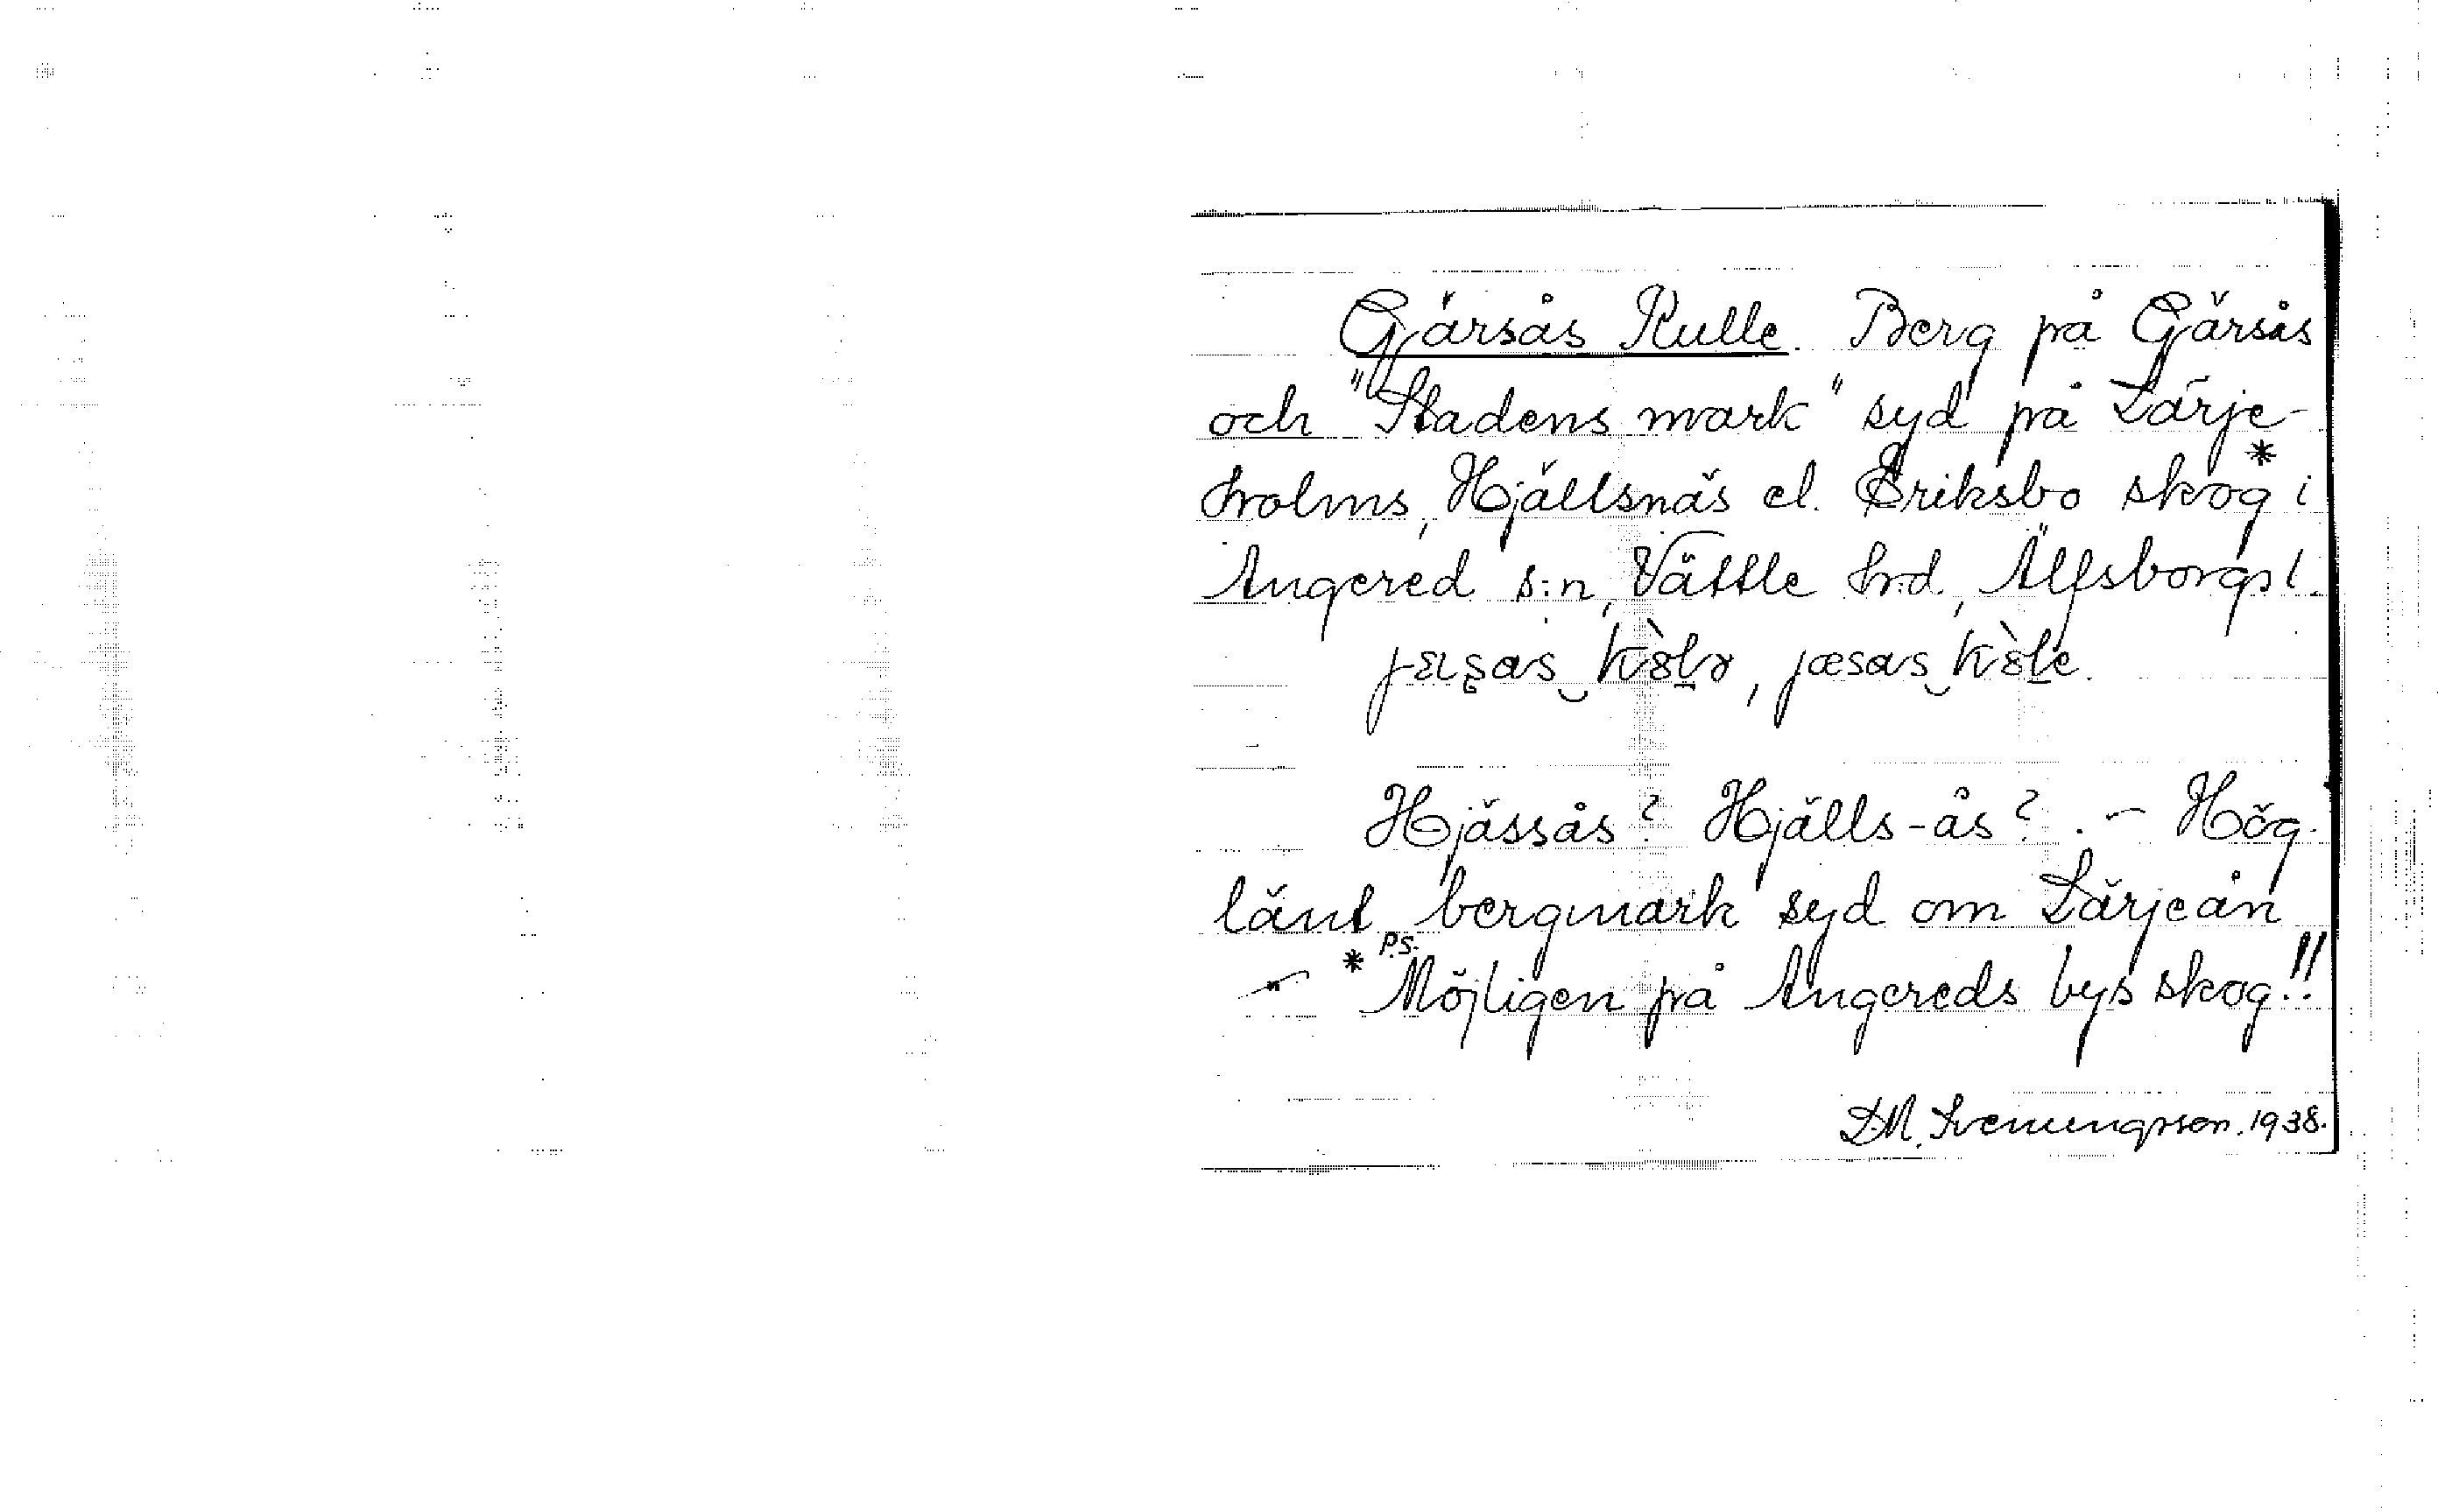 Gärsås Kulle. Berg på Gärsås
och "Stadens mark" syd på Lärje-
holms, Hjällsnäs el. Eriksbo skog* i
Angered s:n, Vättle hd, Älfsborgs l.
Hjässås? Hjälls-ås? . – Hög-
länt bergmark syd om Lärjeån
* P.S. Möjligen på Angereds bys skog!!
D.M. Svenungsson. 1938.